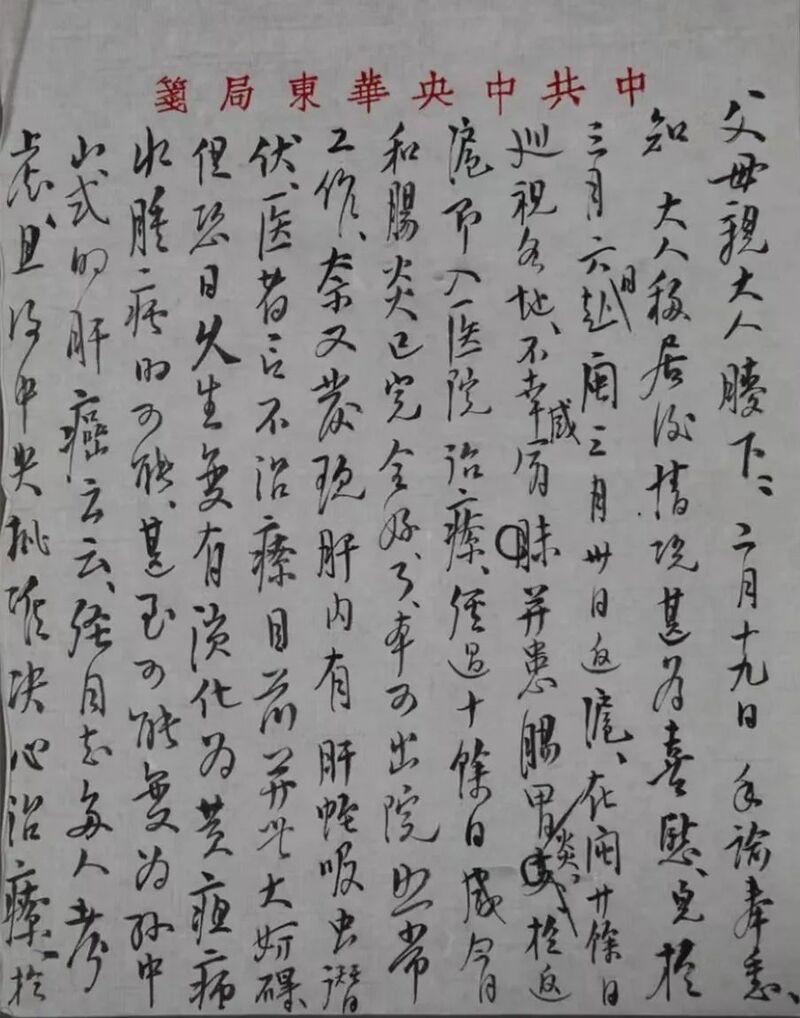 中共中央華東局箋
父母親大人膝下：二月十九日手諭奉悉、
知 大人移居後情况甚為喜慰、兒於
三月六日赴閩三月卅日返滬、在閩廿餘日
巡視各地、不幸感冒并患腸胃炎、於返
滬即入医院治療、經過十餘日感冒
和腸炎已完全好了、本可出院照常
工作、奈又發現肝内有肝蛭吸虫潛
伏、医者言不治療目前并無大妨礙
但恐日久生變有演化為黃疸病
水腫病的可能、甚至可能變為孫中
山式的肝癌、云云、經自己多人考
慮、且得中央批准决心治療、於